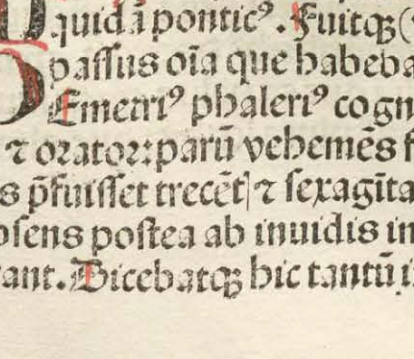 quid ā ponticꝰ. Fuitqꝫ (
passus oīa que habeba
Emetriꝰ phaleriꝰ cogn
⁊ orator: parū vehemēs f
s p̄fuisset trecēt ⁊ sexagīta
osens postea ab inuidis in
ant. Dicebatqꝫ hic tantū i